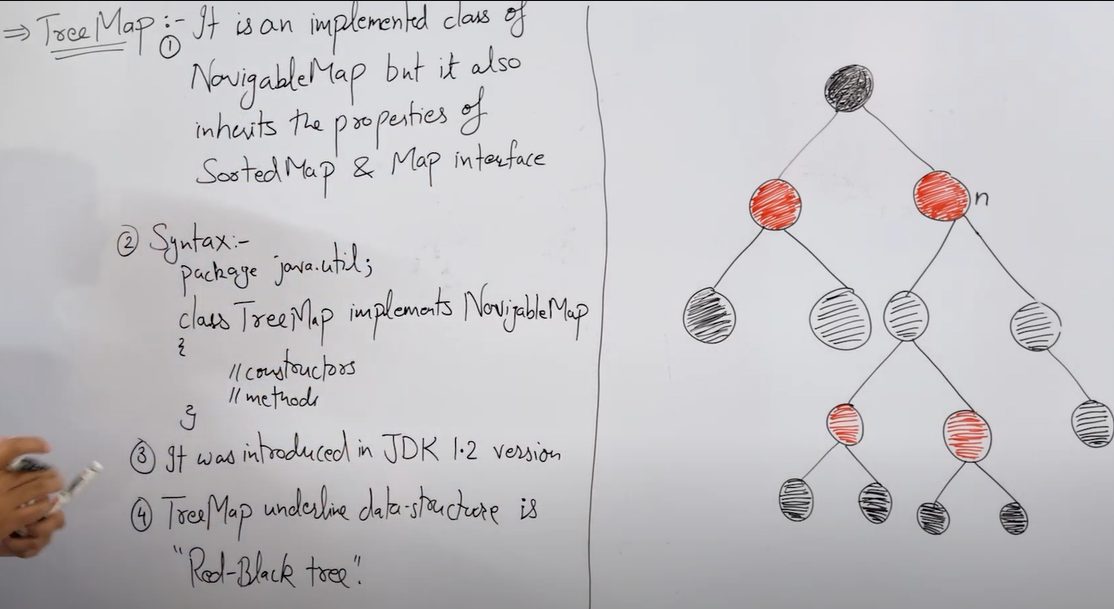 ⇒ TreeMap :- ① It is an implemented class of
NavigableMap but it also
inherits the properties of
SortedMap & Map interface
② Syntax:-
package java.util;
class TreeMap implements NavigableMap
{
//constructors
//methods
}
③ It was introduced in JDK 1.2 version
④ TreeMap underline data-structure is
"Red-Black tree".
n